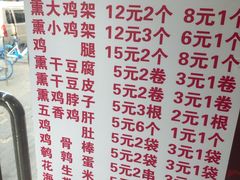 熏大鸡架 12元2个 8元1个
熏小鸡架 12元3个 6元1个
鸡腿 15元2个 8元1个
熏干豆腐 5元2卷 3元1卷
熏干豆皮 5元2卷 3元1卷
鸡香脖子 5元3根 2元1根
五香鸡肝 5元6个 1元1个
鸡肚 5元2袋 3元1袋
骨棒 5元2袋 3元1袋
鹌鹑蛋 5元2串 3元1
花生米 5元2袋 3元1
海